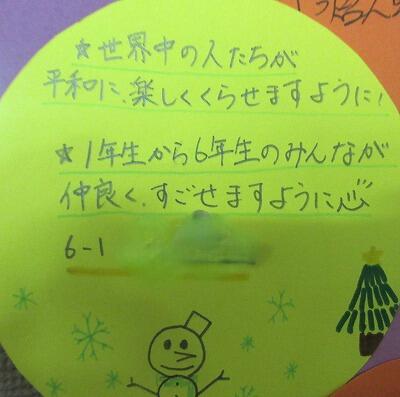 ★世界中の人たちが
平和に、楽しくくらせますように!
★1年生から6年生のみんなが
仲良く、すごせますように
6-1